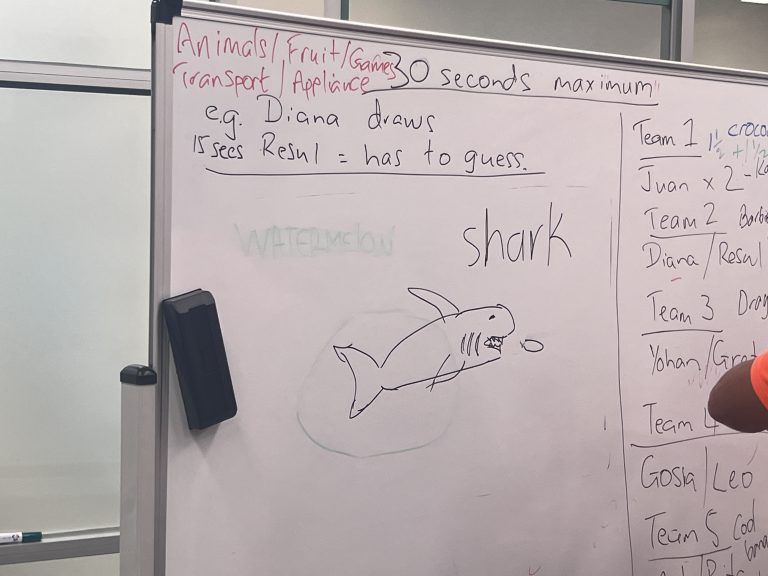 Animals/Fruit/Games
Transport/Appliance
30 seconds maximum
e.g. Diana draws
15 secs Resul = has to guess.
WATERMELON
shark
Team 1 1½
+1½
Juan x 2 -
Team 2
Diana/Resul
Team 3
Yohan/
Team 4
Gosia/Leo
Team 5 Cod